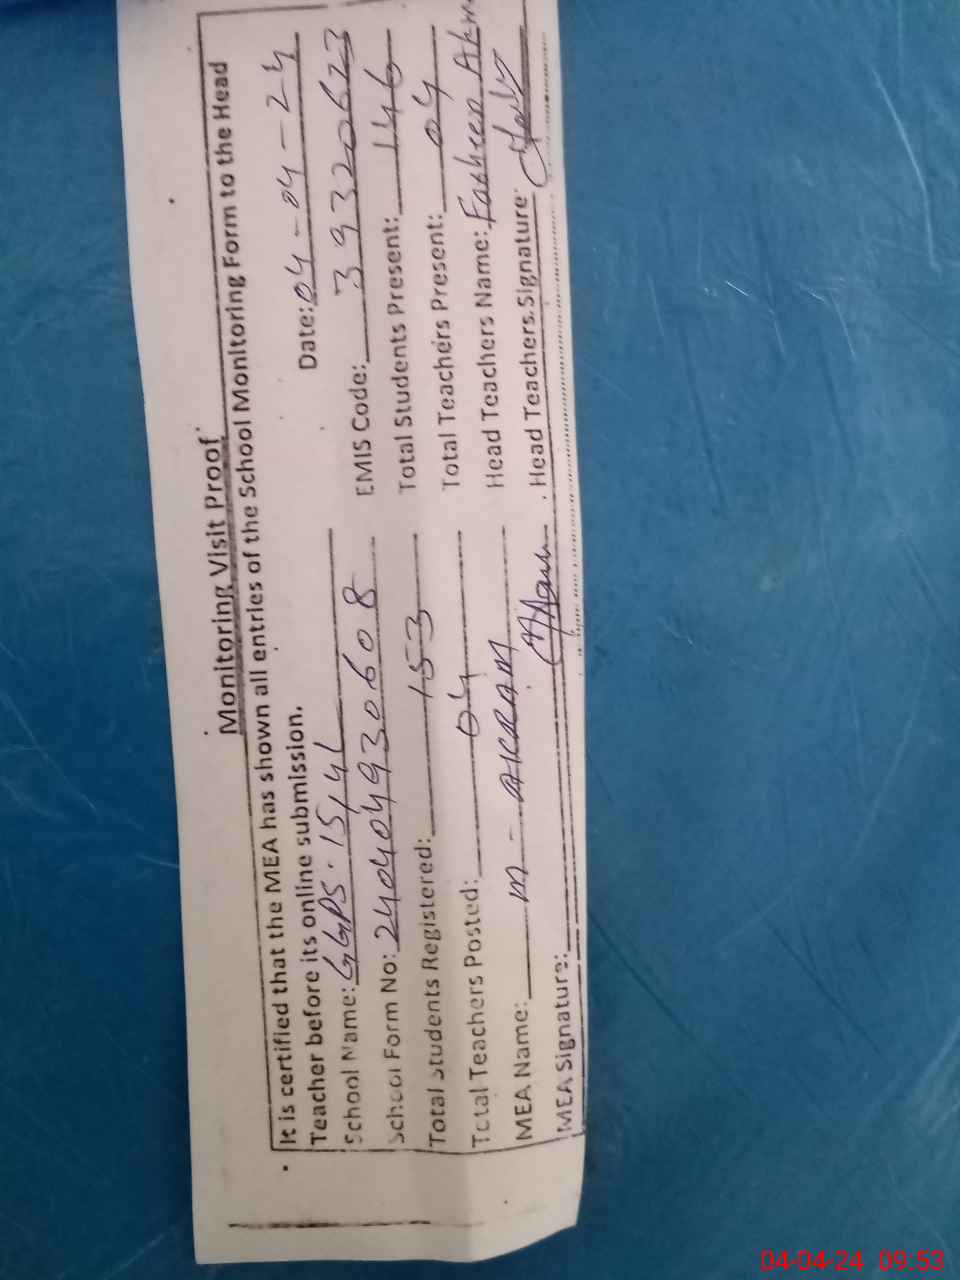 Monitoring Visit Proof
It is certified that the MEA has shown all entries of the School Monitoring Form to the Head
Teacher before its online submission. Date: 04-04-24
School Name: GGPS. 15/4L EMIS Code: 39320673
School Form No: 24040493060 8 Total Students Present: 146
Total Students Registered: 153 Total Teachers Present: 04
Total Teachers Posted: 04 Head Teachers Name:
MEA Name: M - AKRAM Head Teachers Signature:
MEA Signature:
04-04-24 09:53